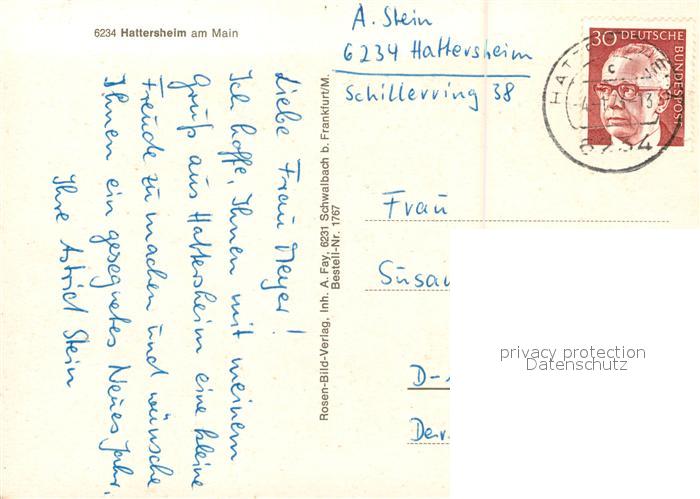 6234 Hattersheim am Main
A. Stein
6234 Hattersheim
Schillerring 38
30 DEUTSCHE BUNDESPOST
6234
Liebe Frau Meyer!
Ich hoffe, Ihnen mit meinem
Gruß aus Hattersheim eine kleine
Freude zu machen und wünsche
Ihnen ein gesegnetes Neues Jahr.
Ihre Astrid Stein
Rosen-Bild-Verlag, Inh. A. Fay, 6231 Schwalbach b. Frankfurt/M.
Bestell-Nr. 1767
Frau
Susan
D-
privacy protection
Datenschutz